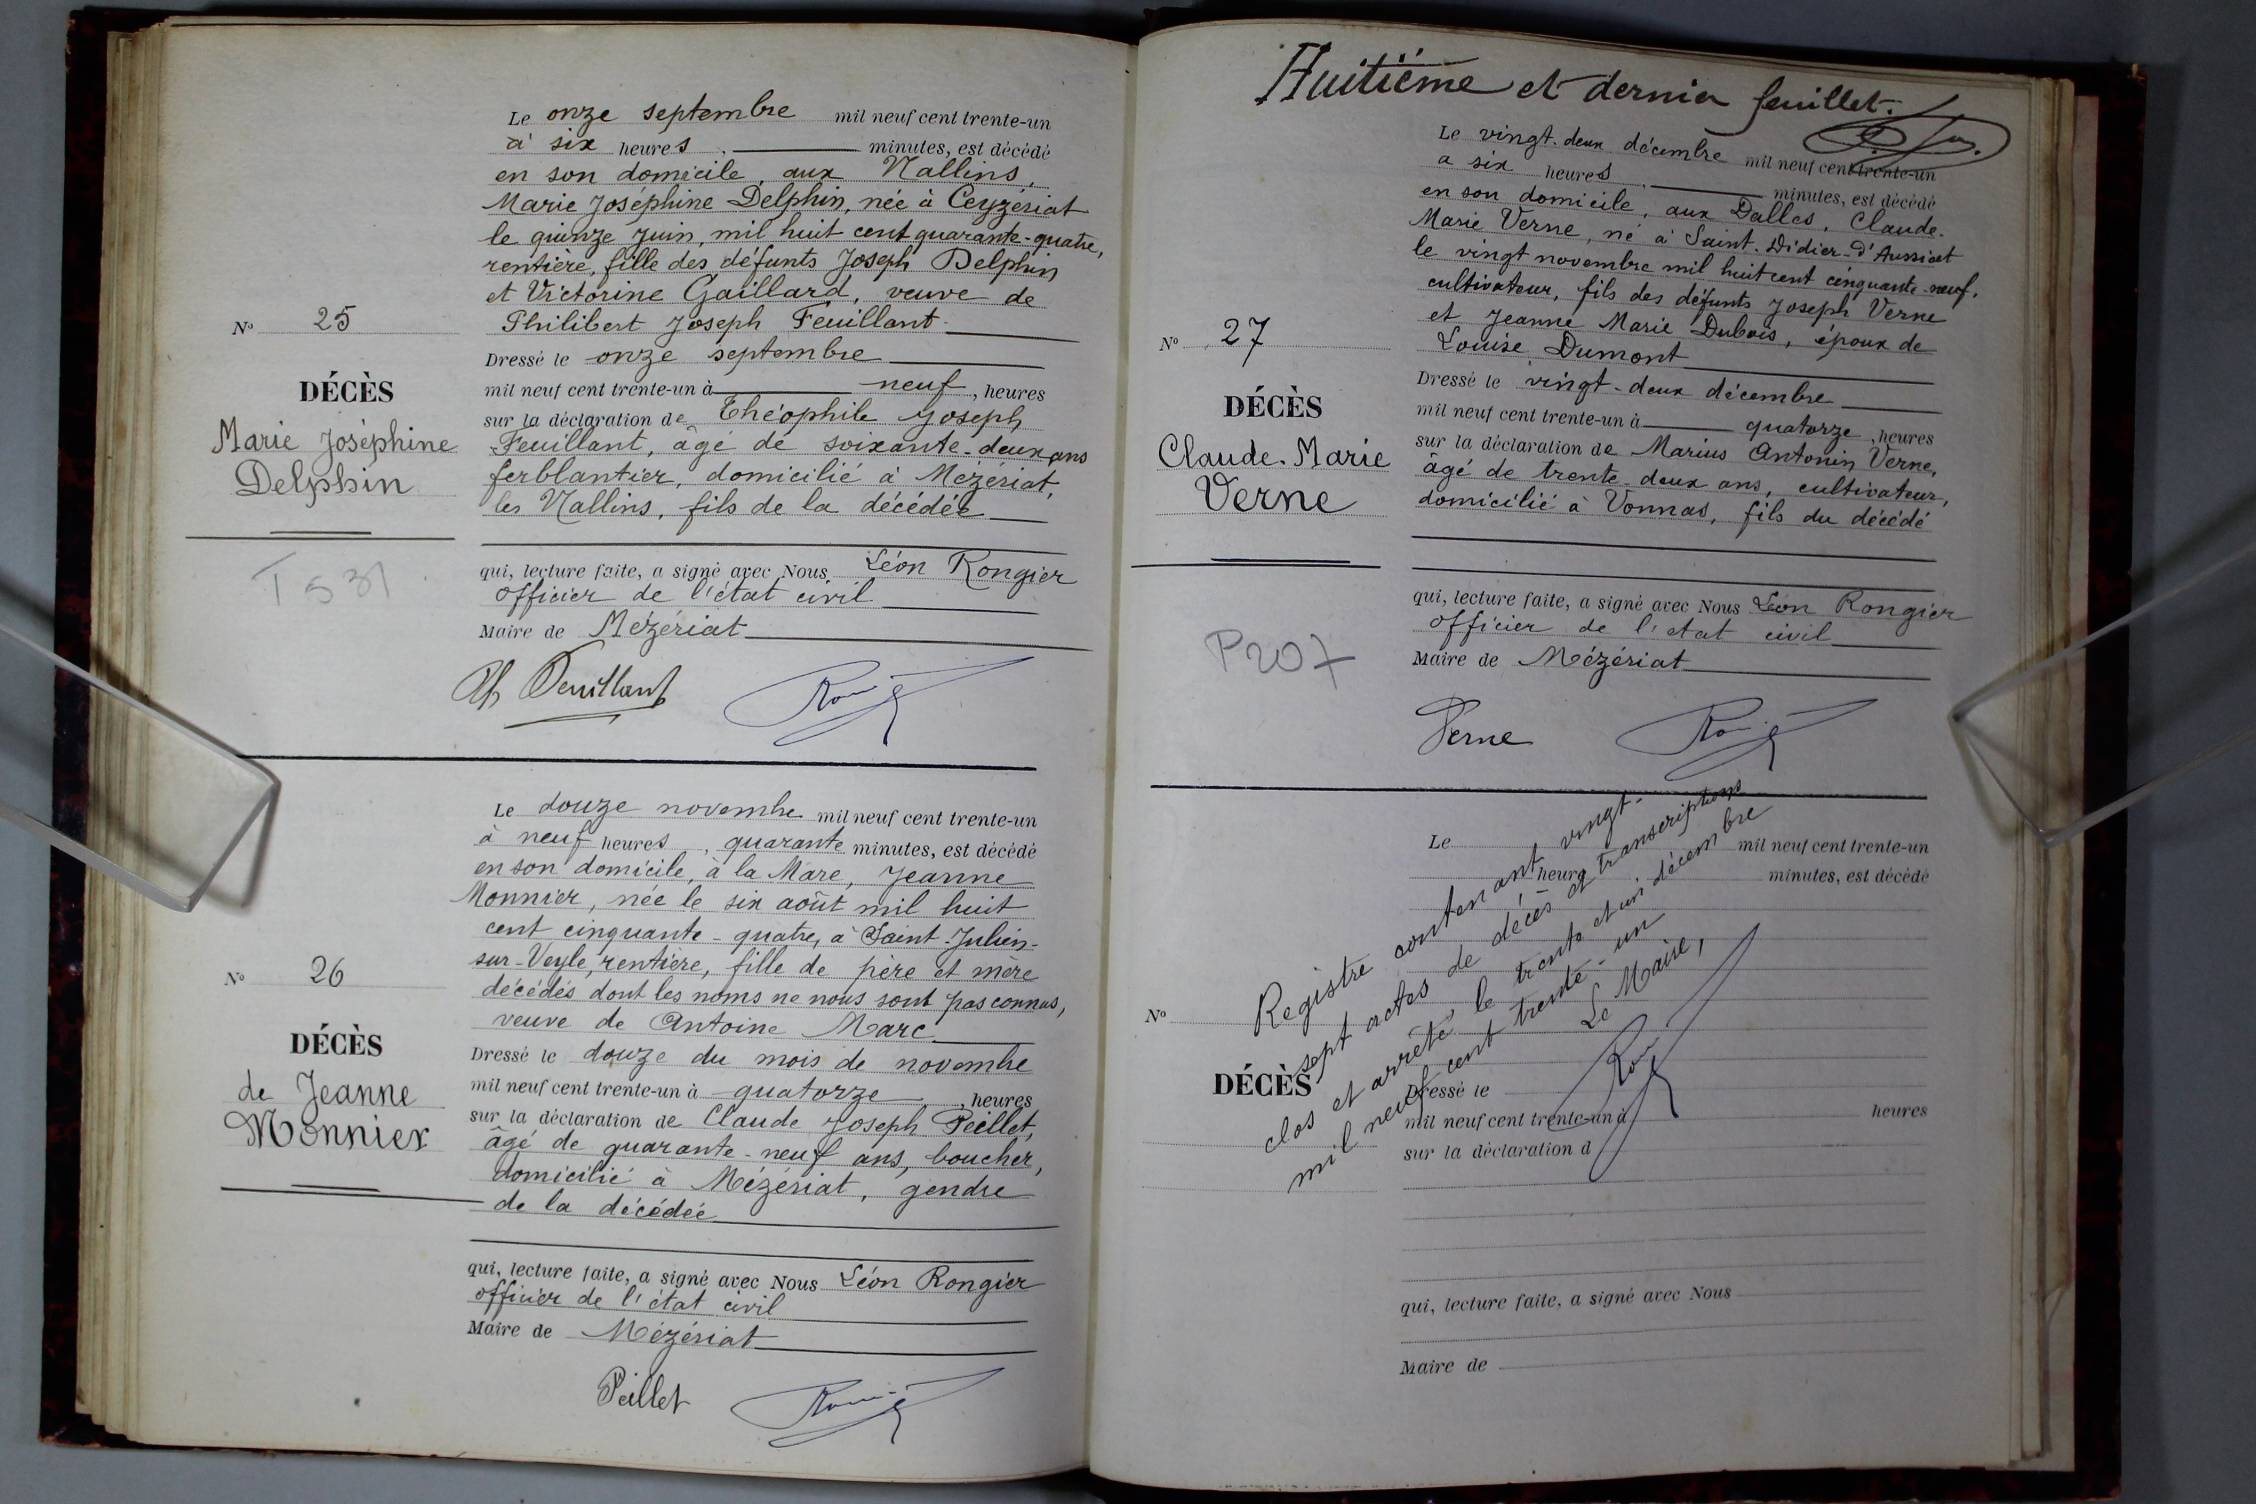 Le onze septembre mil neuf cent trente-un
à six heures, minutes, est décédé
en son domicile, aux Nallins,
Marie Joséphine Delphin, née à Ceyzériat
le quinze Juin, mil huit cent quarante-quatre,
rentière, fille des défunts Joseph Delphin
et Victorine Gaillard, veuve de
Philibert Joseph Feuillant
N° 25
DÉCÈS
Marie Joséphine
Delphin
Dressé le onze septembre
mil neuf cent trente-un à neuf, heures
sur la déclaration de Théophile Joseph
Feuillant, âgé de soixante-deux ans
ferblantier, domicilié à Mézériat,
les Nallins, fils de la décédée
T 531
qui, lecture faite, a signé avec Nous Léon Rongier
officier de l'état civil
Maire de Mézériat
Th Feuillant
Le douze novembre mil neuf cent trente-un
à neuf heures, quarante minutes, est décédé
en son domicile, à la Mare, Jeanne
Monnier, née le six août mil huit
cent cinquante-quatre, à Saint-Julien-
sur-Veyle, rentière, fille de père et mère
décédés dont les noms ne nous sont pas connus,
veuve de Antoine Marc
N° 26
DÉCÈS
de Jeanne
Monnier
Dressé le douze du mois de novembre
mil neuf cent trente-un à quatorze, heures
sur la déclaration de Claude Joseph Peillet,
âgé de quarante-neuf ans, boucher,
domicilié à Mézériat, gendre
de la décédée
qui, lecture faite, a signé avec Nous Léon Rongier
officier de l'état civil
Maire de Mézériat
Peillet
Huitième et dernier feuillet.
Le vingt-deux décembre mil neuf cent trente-un
a six heures, minutes, est décédé
en son domicile, aux Dalles, Claude-
Marie Verne, né à Saint-Didier-d'Aussiat
le vingt novembre mil huit cent cinquante-neuf,
cultivateur, fils des défunts Joseph Verne
et Jeanne Marie Dubois, époux de
Louise Dumont
N° 27
DÉCÈS
Claude-Marie
Verne
Dressé le vingt-deux décembre
mil neuf cent trente-un à quatorze, heures
sur la déclaration de Marius Antonin Verne,
âgé de trente-deux ans, cultivateur,
domicilié à Vonnas, fils du décédé
P207
qui, lecture faite, a signé avec Nous Léon Rongier
officier de l'état civil
Maire de Mézériat
Verne
Le mil neuf cent trente-un
heure minutes, est décédé
Registre contenant vingt-
sept actes de décès et transcriptions
clos et arrêté, le trente et un décembre
mil neuf cent trente-un
Le Maire,
N°
DÉCÈS
Dressé le
mil neuf cent trente-un à heures
sur la déclaration d
qui, lecture faite, a signé avec Nous
Maire de